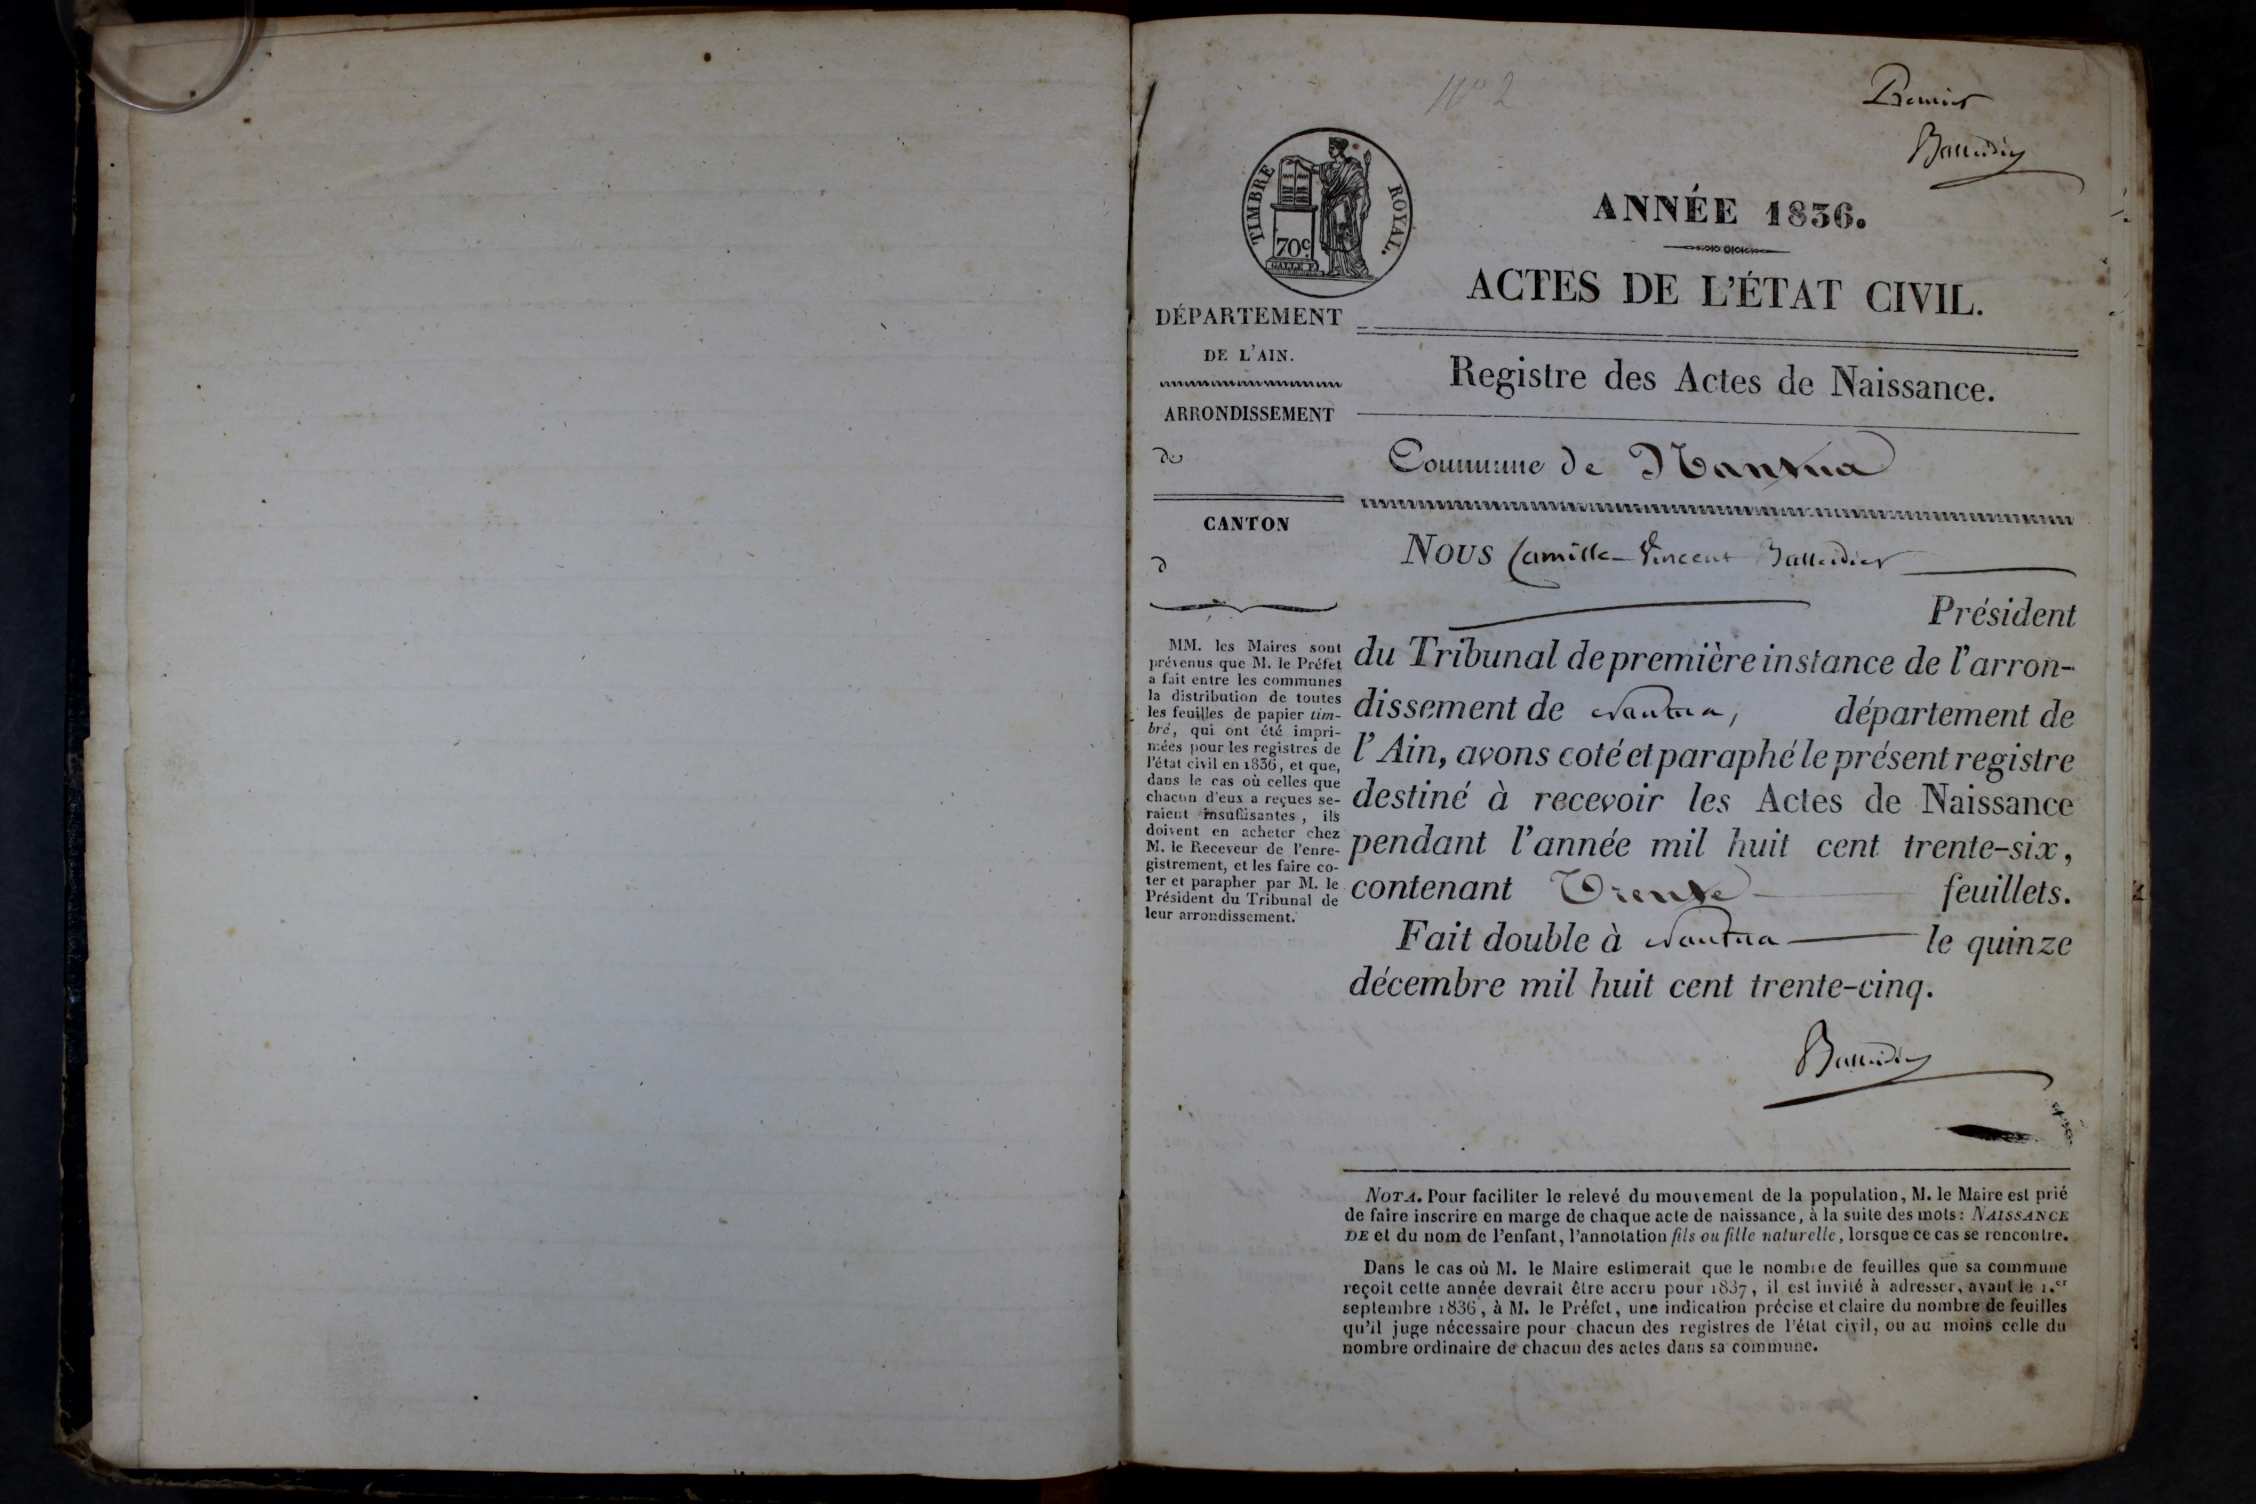 N° 2
Premier
TIMBRE ROYAL.
70c.
ANNÉE 1836.
ACTES DE L'ÉTAT CIVIL.
DÉPARTEMENT
DE L'AIN.
ARRONDISSEMENT
de
CANTON
d
MM. les Maires sont
prévenus que M. le Préfet
a fait entre les communes
la distribution de toutes
les feuilles de papier tim-
bré, qui ont été impri-
mées pour les registres de
l'état civil en 1836, et que,
dans le cas où celles que
chacun d'eux a reçues se-
raient insuffisantes, ils
doivent en acheter chez
M. le Receveur de l'enre-
gistrement, et les faire co-
ter et parapher par M. le
Président du Tribunal de
leur arrondissement.
Registre des Actes de Naissance.
Commune de Nantua
Nous Camille-Vincent
Président
du Tribunal de première instance de l'arron-
dissement de Nantua, département de
l'Ain, avons coté et paraphé le présent registre
destiné à recevoir les Actes de Naissance
pendant l'année mil huit cent trente-six,
contenant Trente feuillets.
Fait double à Nantua le quinze
décembre mil huit cent trente-cinq.
NOTA. Pour faciliter le relevé du mouvement de la population, M. le Maire est prié
de faire inscrire en marge de chaque acte de naissance, à la suite des mots: NAISSANCE
DE et du nom de l'enfant, l'annotation fils ou fille naturelle, lorsque ce cas se rencontre.
Dans le cas où M. le Maire estimerait que le nombre de feuilles que sa commune
reçoit cette année devrait être accru pour 1837, il est invité à adresser, avant le 1.er
septembre 1836, à M. le Préfet, une indication précise et claire du nombre de feuilles
qu'il juge nécessaire pour chacun des registres de l'état civil, ou au moins celle du
nombre ordinaire de chacun des actes dans sa commune.